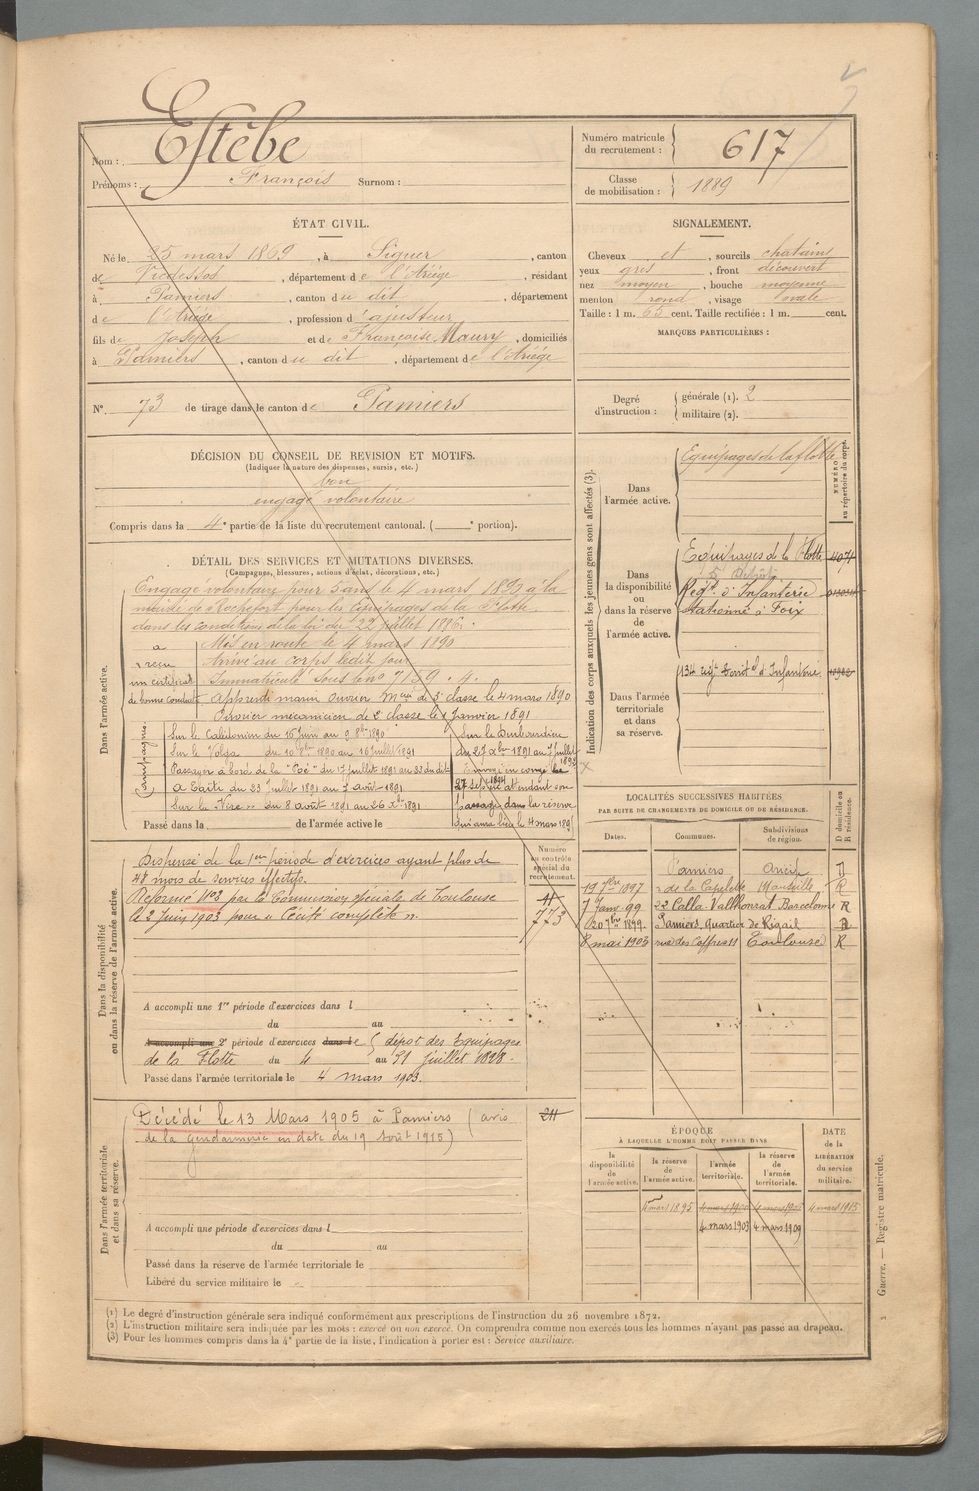 Nom : Estèbe
Prénoms : François Surnom :
Numéro matricule du recrutement : 617
Classe de mobilisation : 1889
ÉTAT CIVIL.
Né le 25 mars 1869, à Siguer, canton
de Vicdessos, département de l'Ariége, résidant
à Pamiers, canton du dit, département
de l'Ariége, profession d'ajusteur
fils de Joseph et de Françoise Maury, domiciliés
à Pamiers, canton du dit, département de l'Ariége
N° 73 de tirage dans le canton de Pamiers
SIGNALEMENT.
Cheveux et, sourcils chatains
yeux gris, front découvert
nez moyen, bouche moyenne
menton rond, visage ovale
Taille : 1 m. 65 cent. Taille rectifiée : 1 m. cent.
MARQUES PARTICULIÈRES :
Degré d'instruction : générale (1). 2
militaire (2).
DÉCISION DU CONSEIL DE REVISION ET MOTIFS.
(Indiquer la nature des dispenses, sursis, etc.)
bon
engagé volontaire
Compris dans la 4e partie de la liste du recrutement cantonal. (e portion).
DÉTAIL DES SERVICES ET MUTATIONS DIVERSES.
(Campagnes, blessures, actions d'éclat, décorations, etc.)
Dans l'armée active.
Engagé volontaire pour 5 ans le 4 mars 1890 à la
mairie de Rochefort pour les Equipages de la Flotte
dans les conditions de la loi du 22 juillet 1886.
a reçu un certificat de bonne conduite
Mis en route le 4 mars 1890
Arrivé au corps ledit jour
Immatriculé sous le no 7159.4.
Apprenti marin Ouvrier Mcien de 3e classe le 4 mars 1890
Ouvrier mécanicien de 2e classe le 1 Janvier 1891
Campagnes :
Sur le Calédonien du 16 Juin au 9 8bre 1890
Sur le Volga du 10 8bre 1890 au 16 juillet 1891
Passager à bord de la "Pé" du 17 juillet 1891 au 22 du dit
A Taïti du 23 Juillet 1891 au 7 août 1891
Sur la Vire du 8 août 1891 au 26 Xbre 1891
Sur le Dubourdieu
du 27 Xbre 1891 au 7 Juillet
1892
Envoyé en congé le
27 Sepbre 1894 attendant son
passage dans la réserve
qui aura lieu le 4 mars 189
Passé dans la de l'armée active le
Indication des corps auxquels les jeunes gens sont affectés (3).
Dans l'armée active.
Equipages de la flotte
NUMÉRO au répertoire du corps.
Dans la disponibilité ou dans la réserve de l'armée active.
Equipages de la Flotte
5e Dépôt
Regt d'Infanterie
stationné à Foix
Dans l'armée territoriale et dans sa réserve.
134 régt Territal d'Infanterie
LOCALITÉS SUCCESSIVES HABITÉES
PAR SUITE DE CHANGEMENTS DE DOMICILE OU DE RÉSIDENCE.
Dates. Communes. Subdivisions de région. D domicile ou R résidence.
Pamiers
19 7bre 1897 r de la Capelette Marseille R
7 Janv 99 22 Calla Vallhonrat Barcelone R
20 7bre 1899. Pamiers, Quartier de Rigail
8 mai 1903 rue des Coffres 11 Toulouse R
Dans la disponibilité ou dans la réserve de l'armée active.
Dispensé de la 1ère période d'exercices ayant plus de
48 mois de services effectifs.
Réformé No 2 par la Commission spéciale de Toulouse
le 2 Juin 1903 pour « Cécité complète ».
Numéro au contrôle spécial du recrutement.
773
A accompli une 1re période d'exercices dans l
du au
A accompli une 2e période d'exercices dans le dépôt des Equipages
de la Flotte du 4 au 31 Juillet 1898.
Passé dans l'armée territoriale le 4 mars 1903.
Dans l'armée territoriale et dans sa réserve.
Décédé le 13 Mars 1905 à Pamiers (avis
de la Gendarmerie en date du 19 Août 1915)
211
A accompli une période d'exercices dans l
du au
Passé dans la réserve de l'armée territoriale le
Libéré du service militaire le
ÉPOQUE
À LAQUELLE L'HOMME DOIT PASSER DANS
la disponibilité de l'armée active. la réserve de l'armée active. l'armée territoriale. la réserve de l'armée territoriale.
DATE de la LIBÉRATION du service militaire.
4 mars 1895 4 mars 1915
4 mars 1903 4 mars 1909
Guerre. — Registre matricule.
(1) Le degré d'instruction générale sera indiqué conformément aux prescriptions de l'instruction du 26 novembre 1872.
(2) L'instruction militaire sera indiquée par les mots : exercé ou non exercé. On comprendra comme non exercés tous les hommes n'ayant pas passé au drapeau.
(3) Pour les hommes compris dans la 4e partie de la liste, l'indication à porter est : Service auxiliaire.